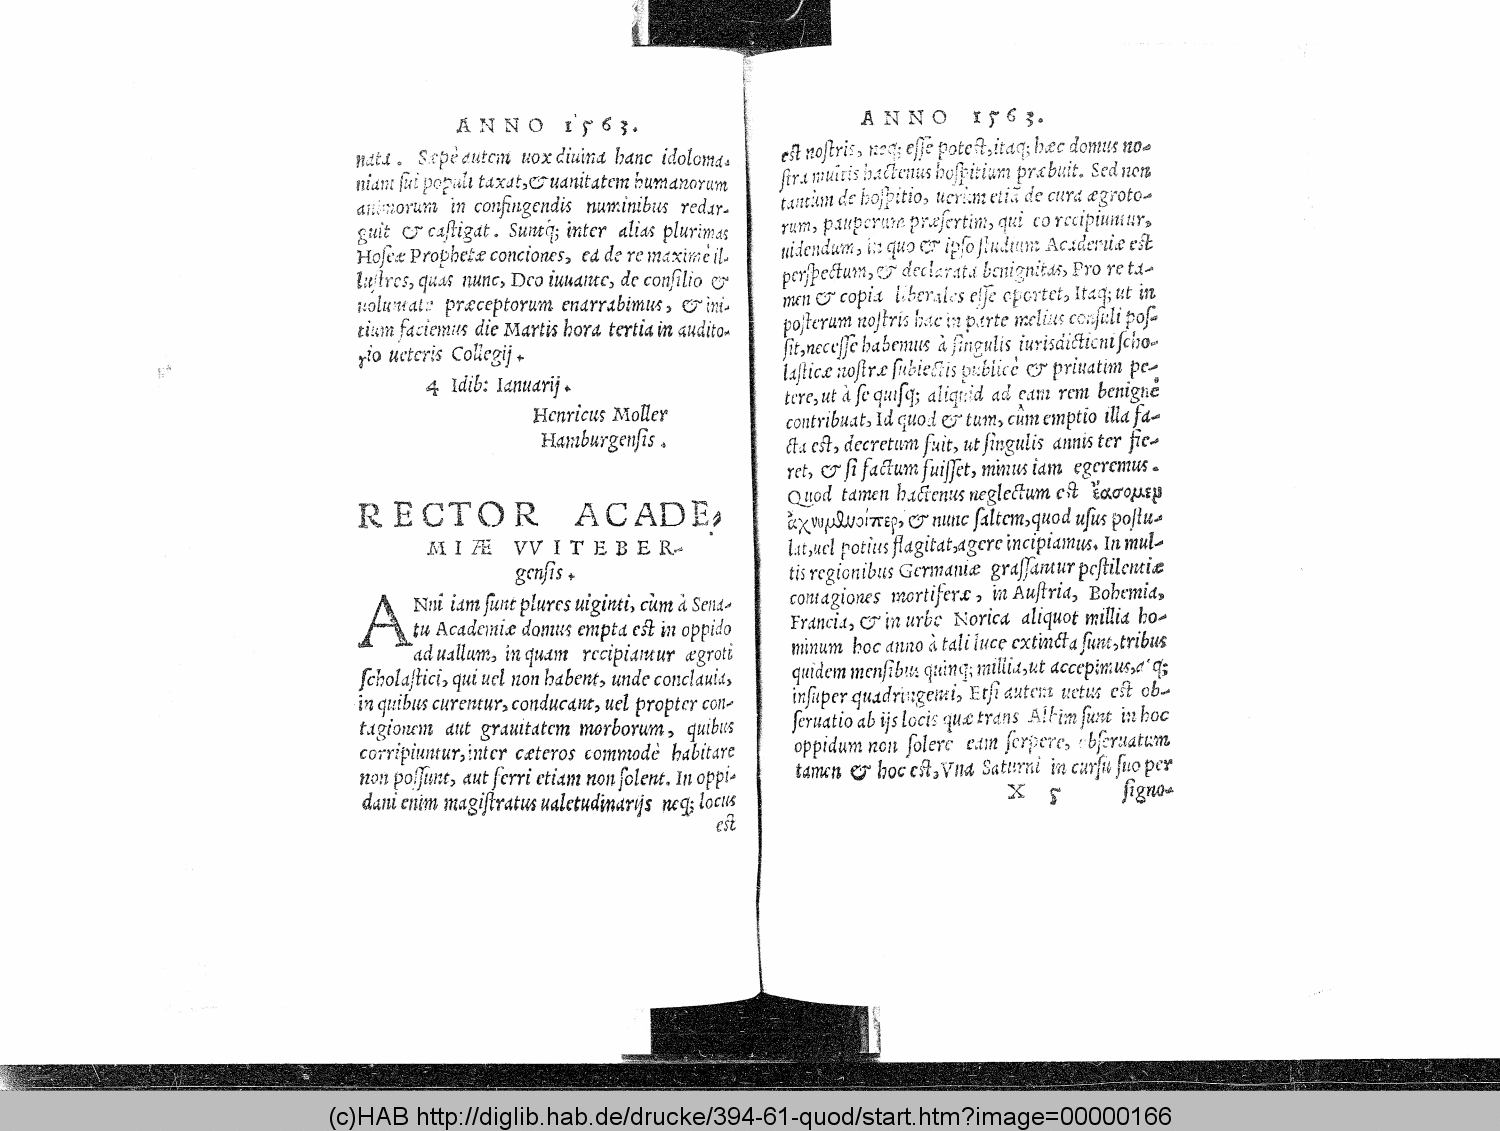 ANNO 1563.
nata. Sæpè autem uox diuina hanc idoloma-
niam sui populi taxat, & uanitatem humanorum
animorum in confingendis numinibus redar-
guit & castigat. Suntq; inter alias plurimas
Hoseæ Prophetæ conciones, ea de re maximè il-
lustres, quas nunc, Deo iuuante, de consilio &
uoluntate præceptorum enarrabimus, & ini-
tium faciemus die Martis hora tertia in audito-
rio ueteris Collegij.
4 Idib: Ianuarij.
Henricus Moller
Hamburgensis.
RECTOR ACADE,
MIÆ VVITEBER-
gensis.
ANni iam sunt plures uiginti, cùm à Sena-
tu Academiæ domus empta est in oppido
ad uallum, in quam recipiantur ægroti
scholastici, qui uel non habent, unde conclauia,
in quibus curentur, conducant, uel propter con-
tagionem aut grauitatem morborum, quibus
corripiuntur, inter cæteros commodè habitare
non possunt, aut ferri etiam non solent. In oppi-
dani enim magistratus ualetudinarijs neq; locus
est
ANNO 1563.
est nostris, neq; esse potest, itaq; hæc domus no-
stra multis hactenus hospitium præbuit. Sed non
tantùm de hospitio, uerùm etiã de cura ægroto-
rum, pauperum præsertim, qui eo recipiuntur,
uidendum, in quo & ipso studium Academiæ est
perspectum, & declarata benignitas, Pro re ta-
men & copia liberales esse oportet, Itaq; ut in
posterum nostris hac in parte melius consuli pos-
sit, necesse habemus à singulis iurisdictioni scho-
lasticæ nostræ subiectis publicè & priuatim pe-
tere, ut à se quisq; aliquid ad eam rem benignè
contribuat, Id quod & tum, cùm emptio illa fa-
cta est, decretum fuit, ut singulis annis ter fie-
ret, & si factum fuisset, minus iam egeremus.
Quod tamen hactenus neglectum est ἐάσομεν
& nunc saltem, quod usus postu-
lat, uel potius flagitat, agere incipiamus. In mul-
tis regionibus Germaniæ grassantur pestilentiæ
contagiones mortiferæ, in Austria, Bohemia,
Francia, & in urbe Norica aliquot millia ho-
minum hoc anno à tali luce extincta sunt, tribus
quidem mensibus quinq; millia, ut accepimus,
insuper quadringenti, Etsi autem uetus est ob-
seruatio ab ijs locis quæ trans Albim sunt in hoc
oppidum non solere eam serpere, obseruatum
tamen & hoc est, Vna Saturni in cursu suo per
X 5 signo-
(c)HAB http://diglib.hab.de/drucke/394-61-quod/start.htm?image=00000166